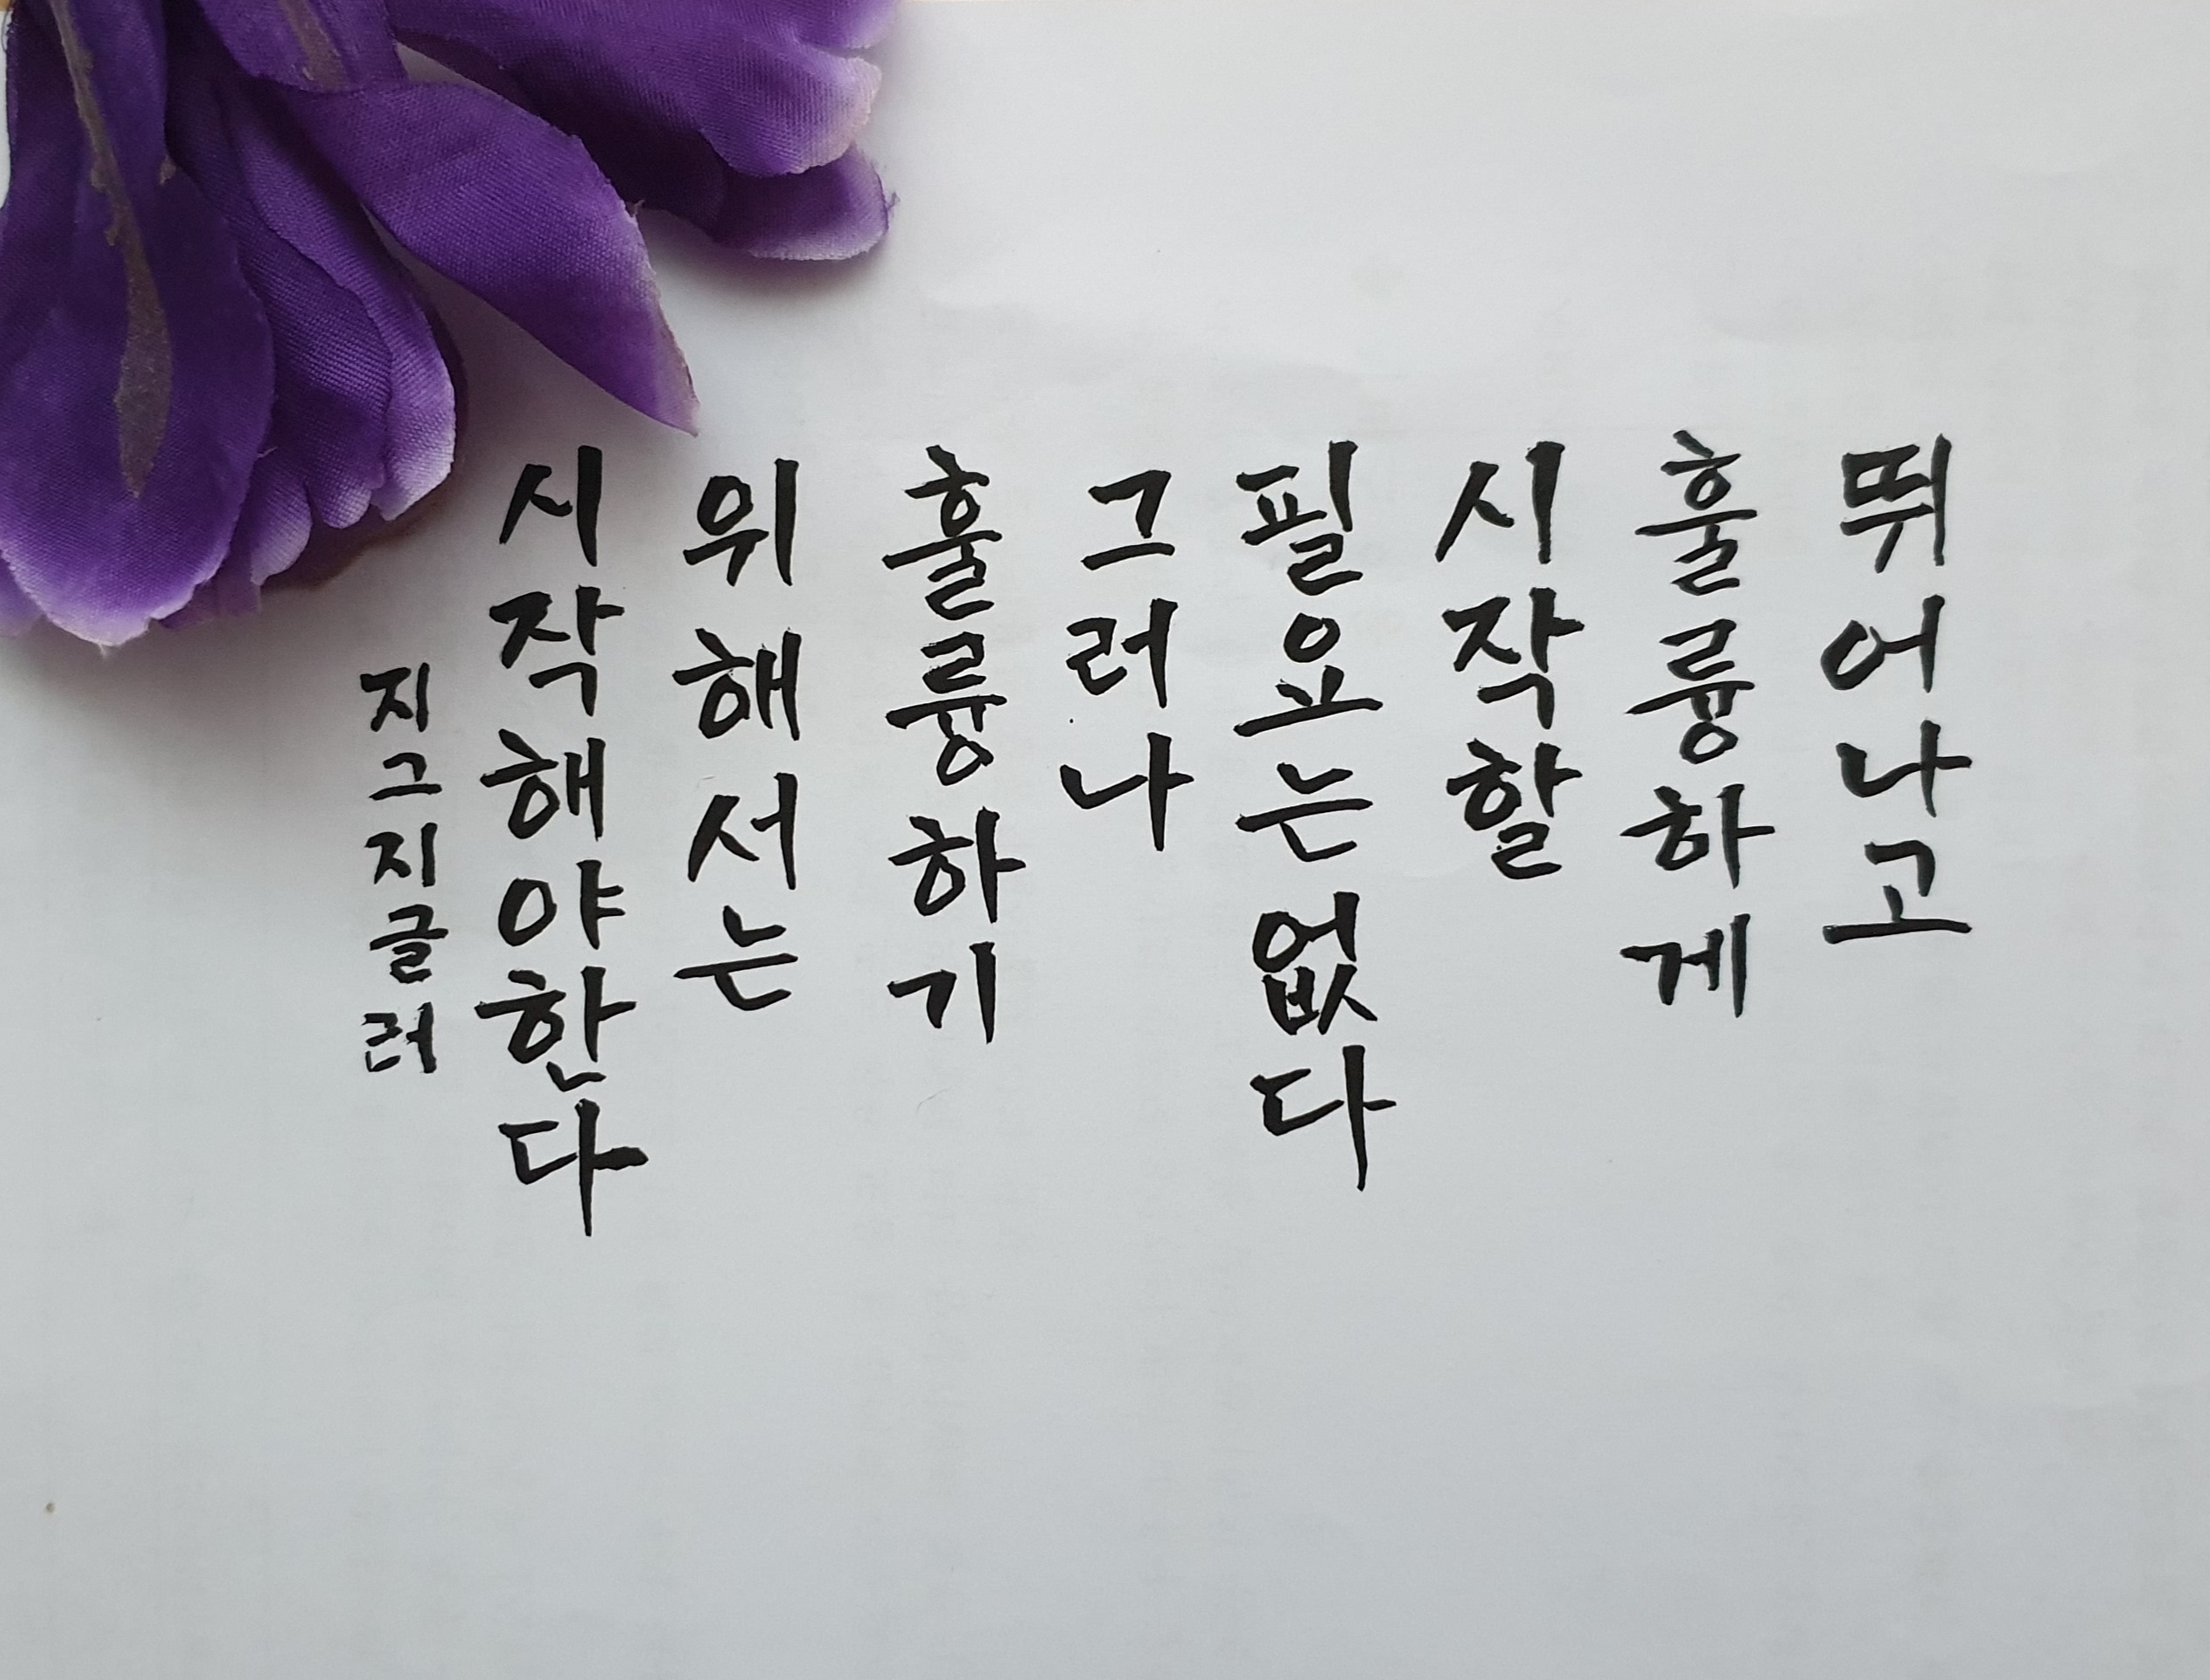 뛰어나고
훌륭하게
시작할
필요는없다
그러나
훌륭하기
위해서는
시작해야한다
지그지글러